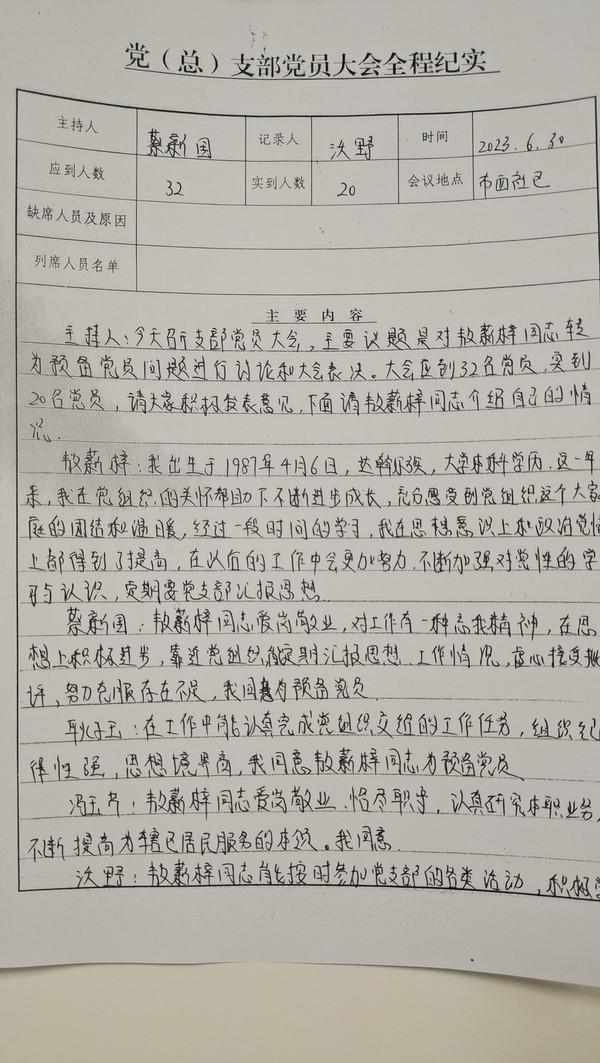 党（总）支部党员大会全程纪实
主持人 蔡新国 记录人 沃野 时间 2023.6.30
应到人数 32 实到人数 20 会议地点 布西社已
缺席人员及原因
列席人员名单
主要内容
主持人：今天召开支部党员大会，主要议题是对敖薪梓同志转
为预备党员问题进行讨论和大会表决。大会应到32名党员，实到
20名党员，请大家积极发表意见，下面请敖薪梓同志介绍自己的情
况。
敖薪梓：我出生于1987年4月6日，达斡尔族，大学本科学历。这一年
来，我在党组织的关怀帮助下不断进步成长，充分感受到党组织这个大家
庭的团结和温暖，经过一段时间的学习，我在思想意识上和政治觉悟
上都得到了提高，在以后的工作中会更加努力，不断加强对党性的学
习与认识，定期要党支部汇报思想。
蔡新国：敖薪梓同志爱岗敬业，对工作有一种忘我精神，在思
想上积极进步，靠近党组织，定期汇报思想、工作情况，虚心接受批
评，努力克服存在不足，我同意为预备党员
耿子玉：在工作中能认真完成党组织交给的工作任务，组织纪
律性强，思想境界高，我同意敖薪梓同志为预备党员
冯玉芹：敖薪梓同志爱岗敬业、恪尽职守，认真研究本职业务，
不断提高为辖已居民服务的本领。我同意
沃野：敖薪梓同志能按时参加党支部的各类活动，积极学